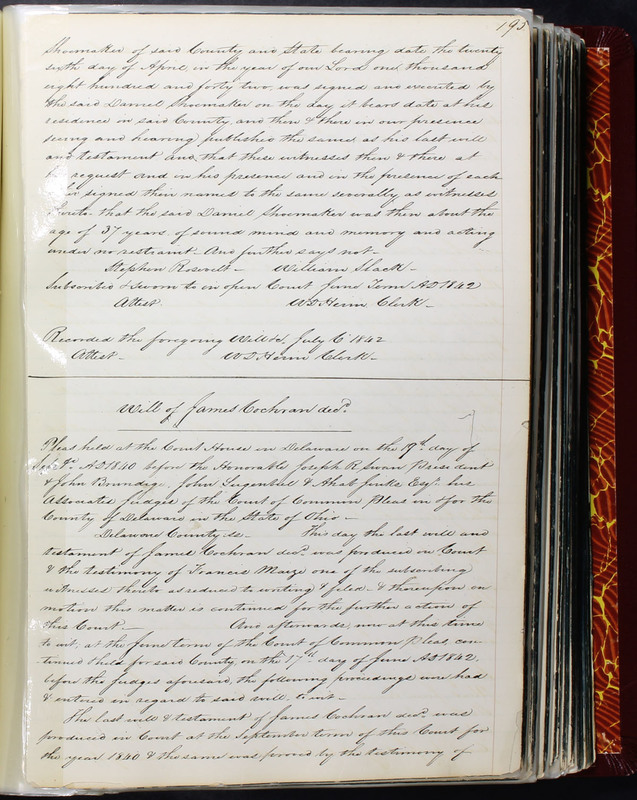 195
Shoemaker of said County and State bearing date the twenty
sixth day of April, in the year of our Lord one thousand
eight hundred and forty two, was signed and executed by
the said Daniel Shoemaker on the day it bears date at his
residence in said County and then & there in our presence
seeing and hearing published the same as his last will
and testament and, that these witnesses then & there at
request and in his presence and in the presence of each
signed their names to the same severally as witnesses
thereto that he said Daniel Shoemaker was then about the
age of 37 years, of sound mind and memory and acting
under no restraint – And further says not –
Stephen Rosevelt – William Slack –
Subscribed & sworn to in open Court June Term AD 1842
Attest W D Heim Clerk –
Recorded the foregoing Will &c. July 6th 1842
Attest – W D Heim Clerk –
Will of James Cochran decd.
Pleas held at the Court House in Delaware on the 19th day of
AD 1840 before the Honorable Joseph R Swan President
& John Brundage, John & Ahab Jinks Esqrs. his
Associates Judges of the Court of Common Pleas in & for the
County of Delaware in the State of Ohio –
Delaware County ss – This day the last will and
testament of James Cochran decd. was produced in Court
& the testimony of Francis Maize one of the subscribing
witnesses thereto as reduced to writing & filed – & thereupon on
motion this matter is continued for the further action of
this Court – And afterwards, now at this time
to wit, at the June term of the Court of Common Pleas con-
tinued & held for said County, on the 17th day of June AD 1842,
before the Judges aforesaid, the following proceedings were had
& entered in regard to said will, to wit –
The last will & testament of James Cochran decd. was
produced in Court at the September term of this Court for
the year 1840 & the same was proved by the testimony of